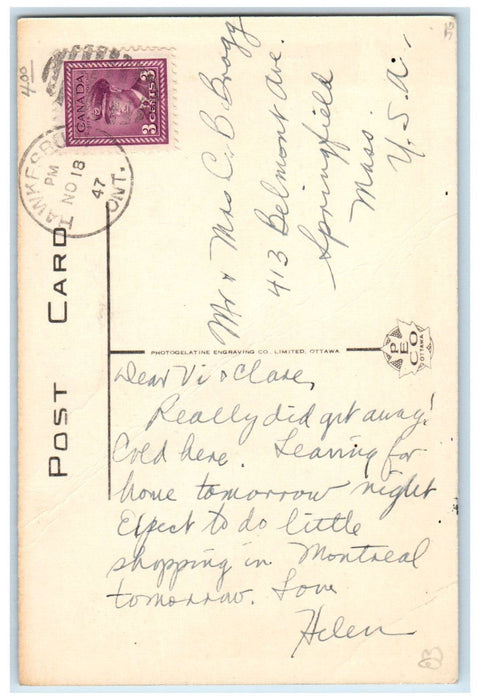 4.00
CANADA
3 CENTS 3
HAWKESBU
PM
NO 18
47
ONT.
Mr + Mrs C. B. Bragg
413 Belmont Ave.
Springfield
Mass.
U.S.A.
POST CARD
PHOTOGELATINE ENGRAVING CO., LIMITED, OTTAWA
PECO
OTTAWA
Dear Vi & Clare,
Really did get away!
Cold here. Leaving for
home tomorrow night
Expect to do little
shopping in Montreal
tomorrow. Love
Helen